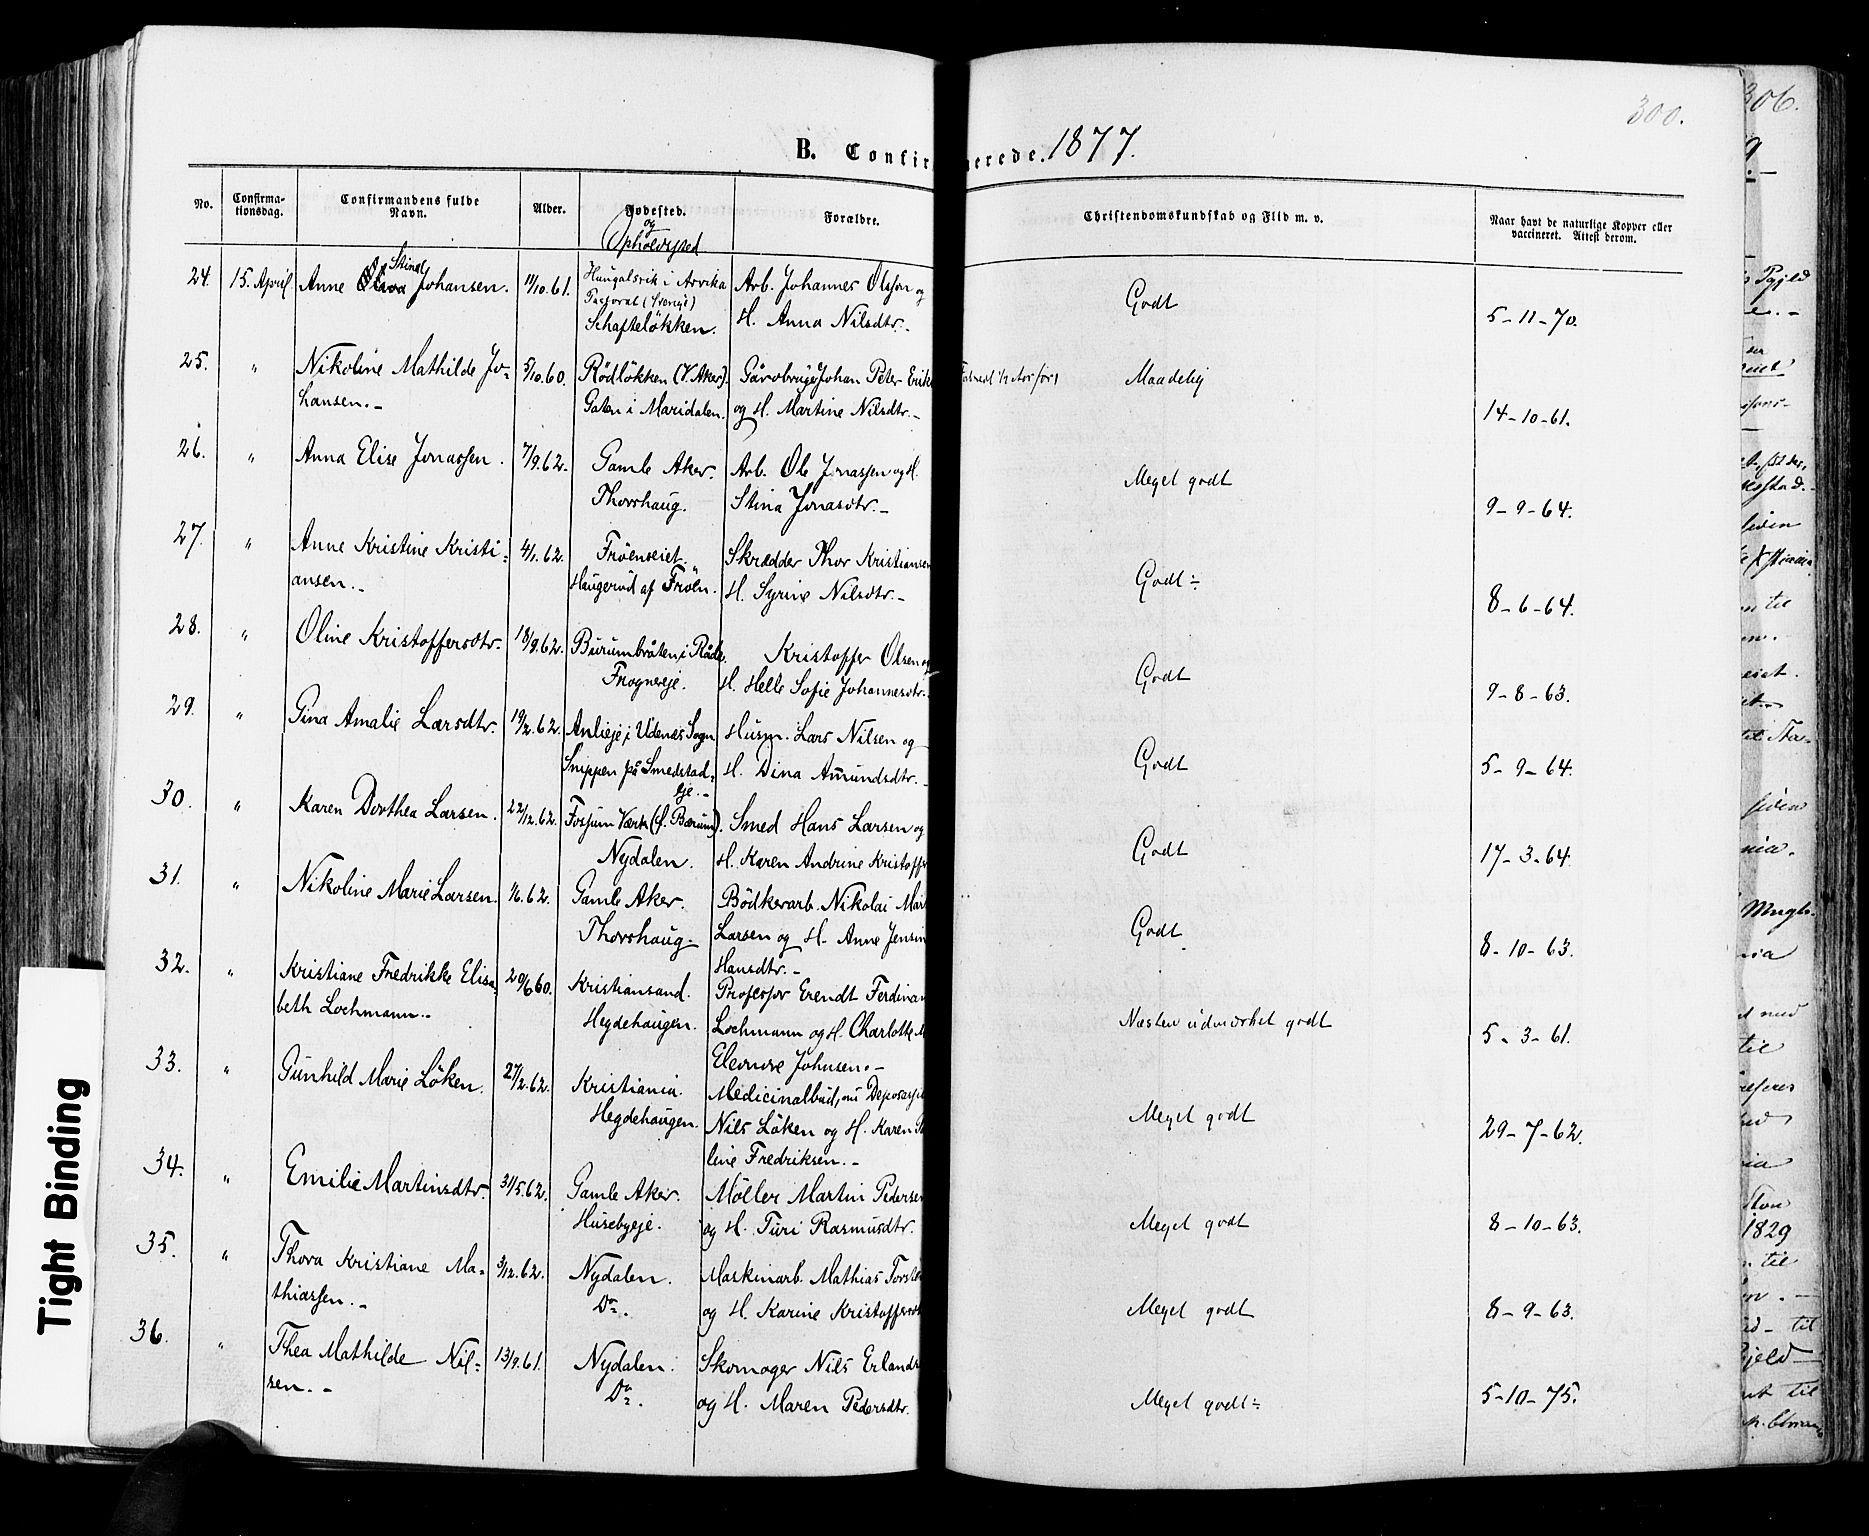 300.
306.
B. Confirmerede. 1877.
No. Confirmationsdag. Confirmandens fulde Navn. Alder. Fødested. og Opholdssted Forældre. Christendomskundskab og Flid m. v. Naar havt de naturlige Kopper eller vaccineret. Attest derom.
24. 15. April. Anne Stina Johansen. 11/10.61. Haugalsvik i Arvika Arb. Johannes Olsson og Godt 5-11-70.
Pastorat (Sverige)
Schafteløkken. H. Anna Nilsdtr.-
25. " Nikoline Mathilde Jo- 5/10.60. Rödlökken (V. Aker). Gårdbruger Johan Peter Erik Maadelig 14-10-61.
hansen.- Gaten i Maridalen. og H. Martine Nilsdtr.-
26. " Anna Elise Jonassen. 7/9.62. Gamle Aker. Arb. Ole Jonassen og H. Meget godt 9-9-64.
Thorshaug. Stina Jonasdtr.-
27. " Anne Kristine Kristi- 4/1.62. Fröenseiet. Skrædder Thor Kristiansen Godt÷ 8-6-64.
ansen.- Haugerud af Fröen. H. Syrine Nilsdtr.-
28. " Oline Kristoffersdtr. 18/9.62. Burumbråten i Råde. Kristoffer Olsen og Godt 9-8-63.
Frognereje. H. Helle Sofie Johannesdtr.-
29. " Gina Amalie Larsdtr. 19/2.62. Anlieje i Udenæs Sogn Husm. Lars Nilsen og Godt 5-9-64.
Snippen på Smedstad- H. Dina Amundsdtr.-
eje.-
30. " Karen Dorthea Larsen. 22/12.62. Fossum Værk (i Bærum). Smed Hans Larsen og Godt 17-3-64.
Nydalen. H. Karen Andrine Kristoffer
31. " Nikoline Marie Larsen. 1/6.62. Gamle Aker. Bödkerarb. Nikolai Mart Godt 8-10-63.
Thorshaug.- Larsen og H. Anne Jensin
Hansdtr.-
32. " Kristiane Fredrikke Elisa- 20/6.60. Kristiansand. Professor Erendt Ferdinan Næsten udmærket godt 5-3-61.
beth Lochmann.- Hegdehaugen. Lochmann og H. Charlotte M
Eleonore Johnsen.-
33. " Gunhild Marie Löken. 27/2.62. Kristiania. Medicinalbud, nu Meget godt 29-7-62.
Hegdehaugen. Nils Löken og H. Karen Pa
line Fredriksen.-
34. " Emilie Martinsdtr. 31/5.62. Gamle Aker. Møller Martin Pedersen Meget godt 8-10-63.
Husebyeje. og H. Turi Rasmusdtr.
35. " Thora Kristiane Ma- 3/12.62. Nydalen. Maskinarb. Mathias Torste Meget godt 8-9-63.
thiassen.- Do. og H. Karine Kristoffersdt
36. " Thea Mathilde Nil- 13/9.61. Nydalen. Skomager Nils Erlands Meget godt÷ 5-10-75.
sen.- Do. og H. Maren Pedersdtr.
Tight Binding
1829